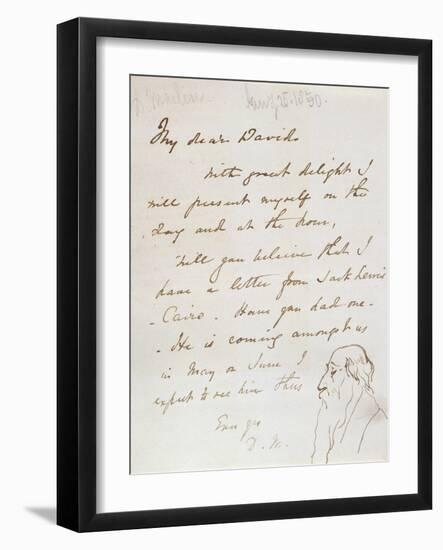 Jany 25. 1850.
My dear David
With great delight I
will present myself on the
day and at the hour,
Will you believe that I
have a letter from Jack Lewis
- Cairo. Have you had one -
- He is coming amongst us
in May or June I
expect to see him thus
Ever yrs